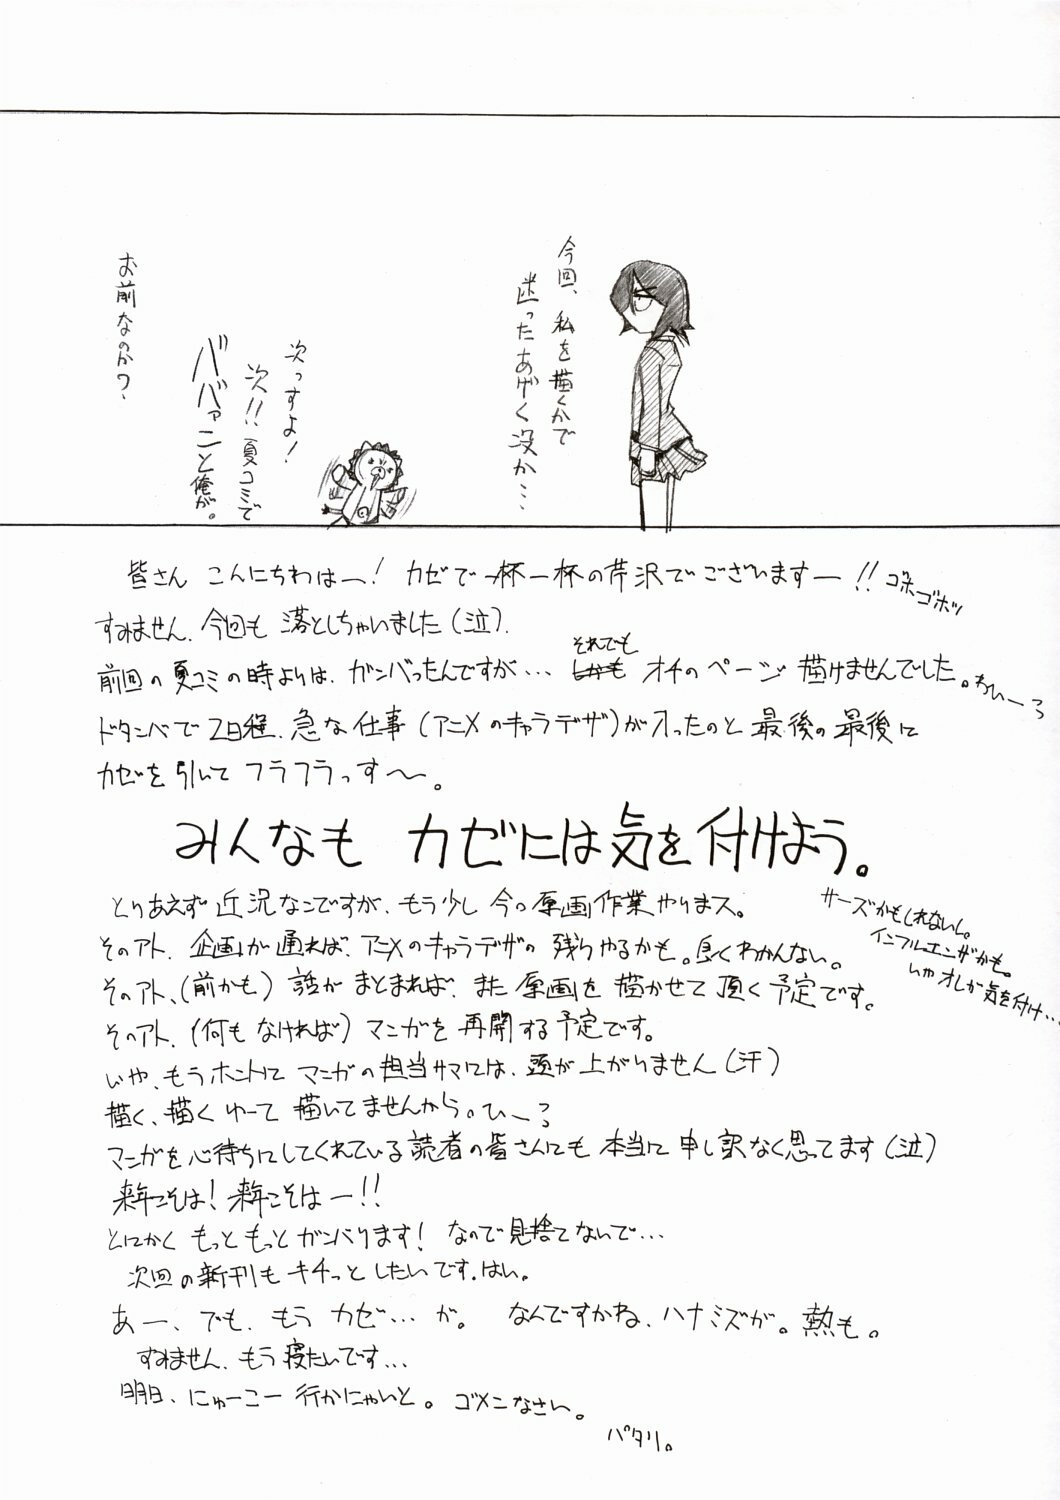 今回、私を描くかで
迷ったあげく没か…
次っすよ!
次!!夏コミで
ババァニと俺が。
お前なのか?
皆さん こんにちわはー! カゼで一杯一杯の芹沢でございますー!! ゴホゴホッ
すみません、今回も 落としちゃいました(泣)。
前回の夏コミの時よりは、ガンバったんですが… それでも オチのページ 描けませんでした。わぃーろ
ドタンバで 2日程、急な仕事(アニメのキャラデザ)が入ったのと 最後の最後に
カゼを引いて フラフラっす〜。
みんなも カゼには気を付けよう。
サーズかもしれないし。
インフルエンザかも。
いや オレが気を付け…
とりあえず 近況なこですが、もう少し 今の原画作業やりまス。
そのアト、企画が通れば、アニメのキャラデザの 残りやるかも。良くわかんない。
そのアト、(前かも) 話が まとまれば、また 原画を 描かせて 頂く予定です。
そのアト、(何もなければ) マンガを 再開する予定です。
いや、もうホントに マンガの担当サマには、頭が上がりません(汗)
描く、描く ゆーて 描いてませんから。ひーろ
マンガを心待ちにしてくれている読者の皆さんにも 本当に 申し訳なく思ってます(泣)
来年こそは! 来年こそはー!!
とにかく もっともっとガンバります! なので見捨てないで…
次回の新刊も キチっと したいです。はい。
あー、でも、もう カゼ…が。 なんですかね、ハナミズが。熱も。
すみません、もう寝たいです…
明日、にゅーこー 行かにゃいと。 ゴメンなさい。
パタリ。